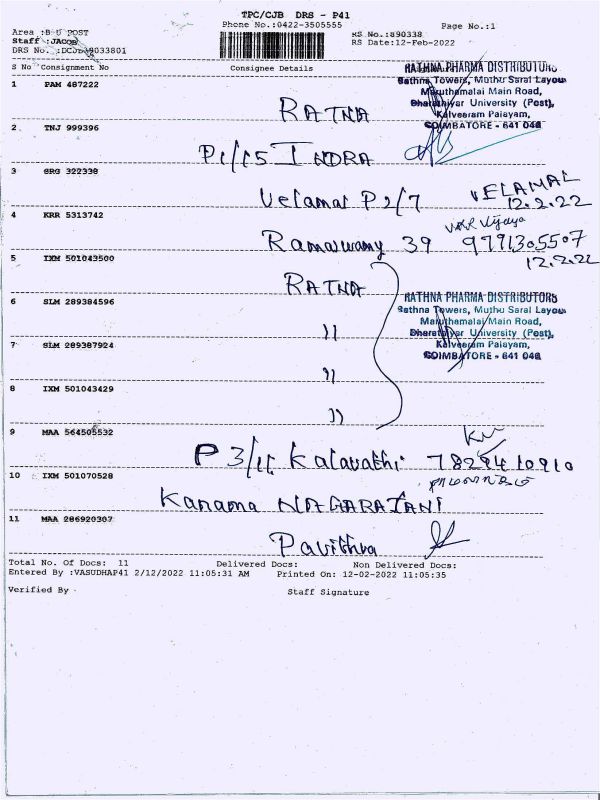 TPC/CJB DRS - P41
Phone No.:0422-3505555
Page No.:1
Area :B U POST
Staff :JACOB
RS No.:890338
RS Date:12-Feb-2022
S No Consignment No
Consignee Details
RATHNA PHARMA DISTRIBUTORS
Rathna Towers, Muthu Saral Layou
Maruthamalai Main Road,
Bharathiyar University (Post),
Kalveeram Palayam,
COIMBATORE - 641 046
1 PAM 487222
RATNA
2 TNJ 999396
INDRA
3 GRG 322338
Velamal P2/7
VELAMAL
12.2.22
4 KRR 5313742
Ramaswamy 39
9791305507
12.2.22
5 IXM 501043500
RATNA
RATHNA PHARMA DISTRIBUTORS
Rathna Towers, Muthu Saral Layou
Maruthamalai Main Road,
Bharathiyar University (Post),
Kalveeram Palayam,
COIMBATORE - 641 046
6 SLM 289384596
"
7 SLM 289387924
"
8 IXM 501043429
"
9 MAA 564505532
Kalavathi
10 IXM 501070528
Kanama NAGARAJANI
11 MAA 286920307
Pavithva
Total No. Of Docs: 11
Delivered Docs:
Non Delivered Docs:
Entered By :VASUDHAP41 2/12/2022 11:05:31 AM
Printed On: 12-02-2022 11:05:35
Verified By -
Staff Signature